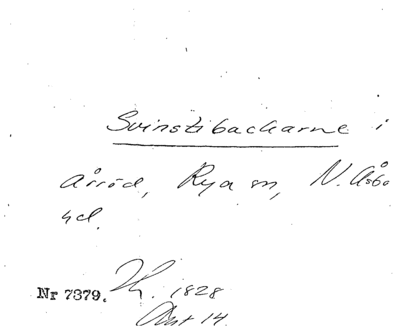 Svinstibackarne i
Årröd, Rya sn, N. Åsbo
hd.
Nr 7379. 1828
Akt 14.